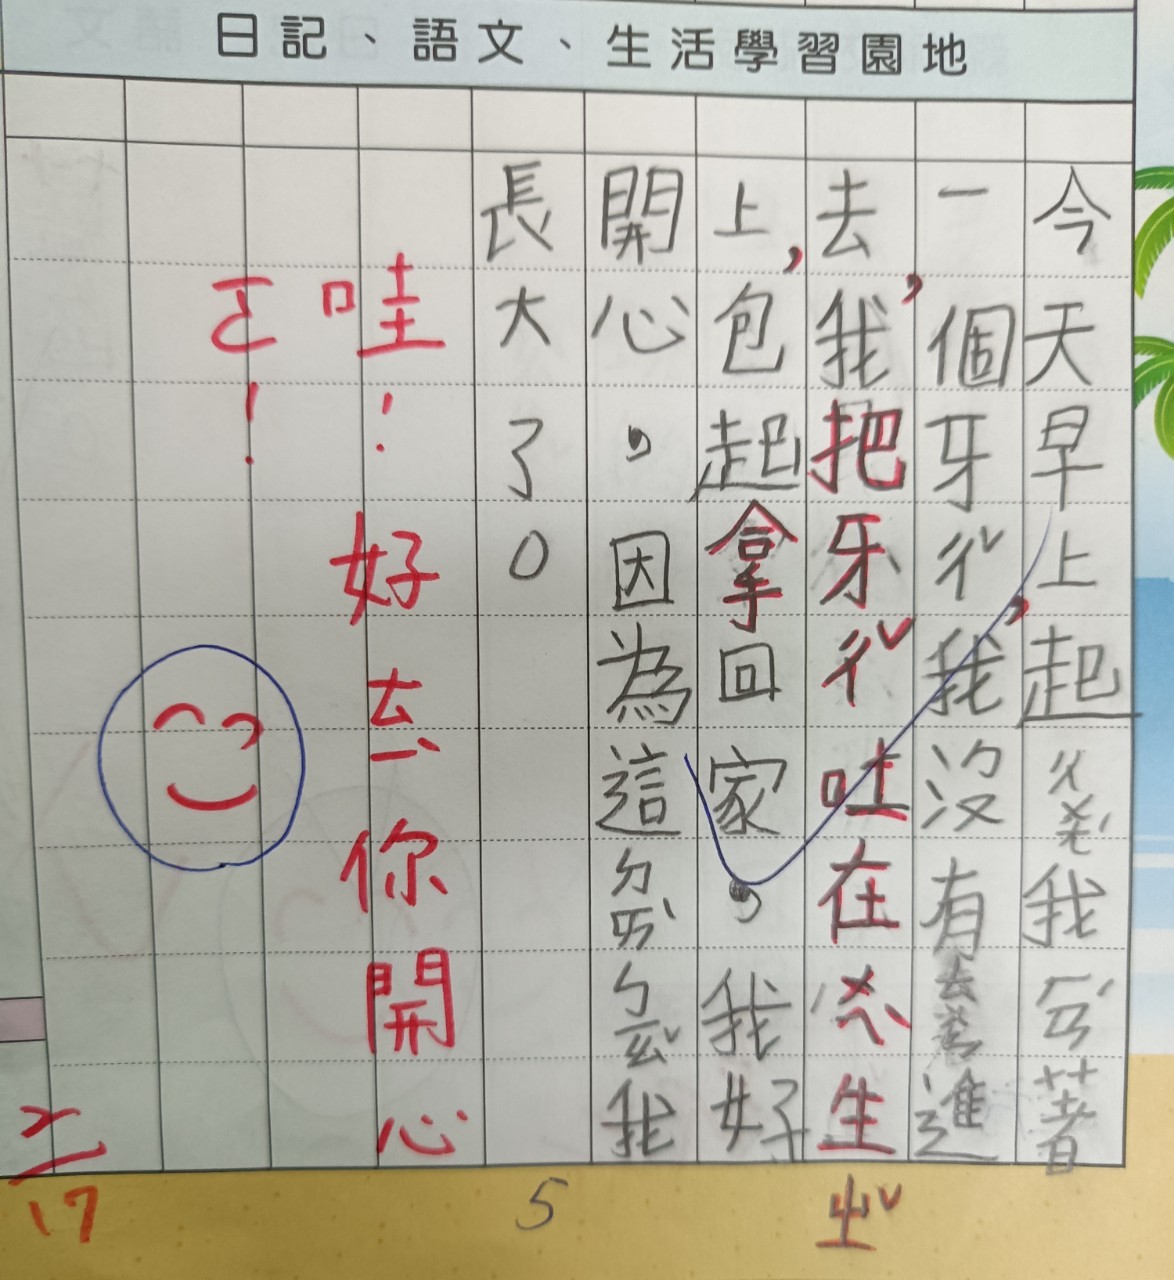 日記、語文、生活學習園地
今天早上,起我ㄏㄢˊ著
一個牙ㄔˇ我沒有進
去,我把牙ㄔˇ吐在生
ㄓˇ
上,包起拿回家,我好
開心,因為這ㄉㄞˋㄅㄧㄠˇ我
長大了。
哇!好ㄊㄧˋ你開心
ㄛ!
2/17
5